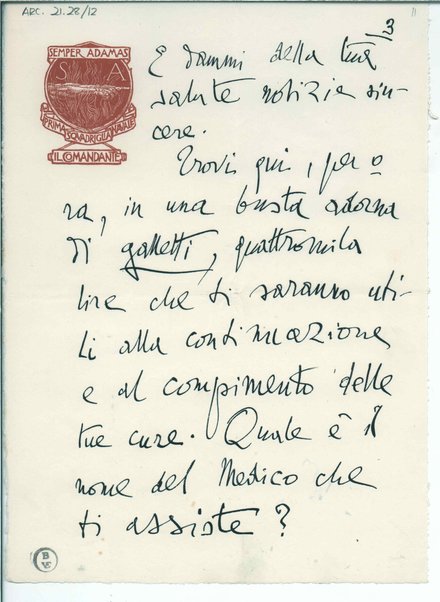 ARC. 21.28/12
3
SEMPER ADAMAS
S A
PRIMA SQUADRIGLIA NAVALE
IL COMANDANTE
E dammi della tua
salute notizie sin-
cere.
Trovi qui, per o
ra, in una busta adorna
di galletti, quattromila
lire che ti saranno uti-
li alla continuazione
e al compimento delle
tue cure. Quale è il
nome del Medico che
ti assiste?